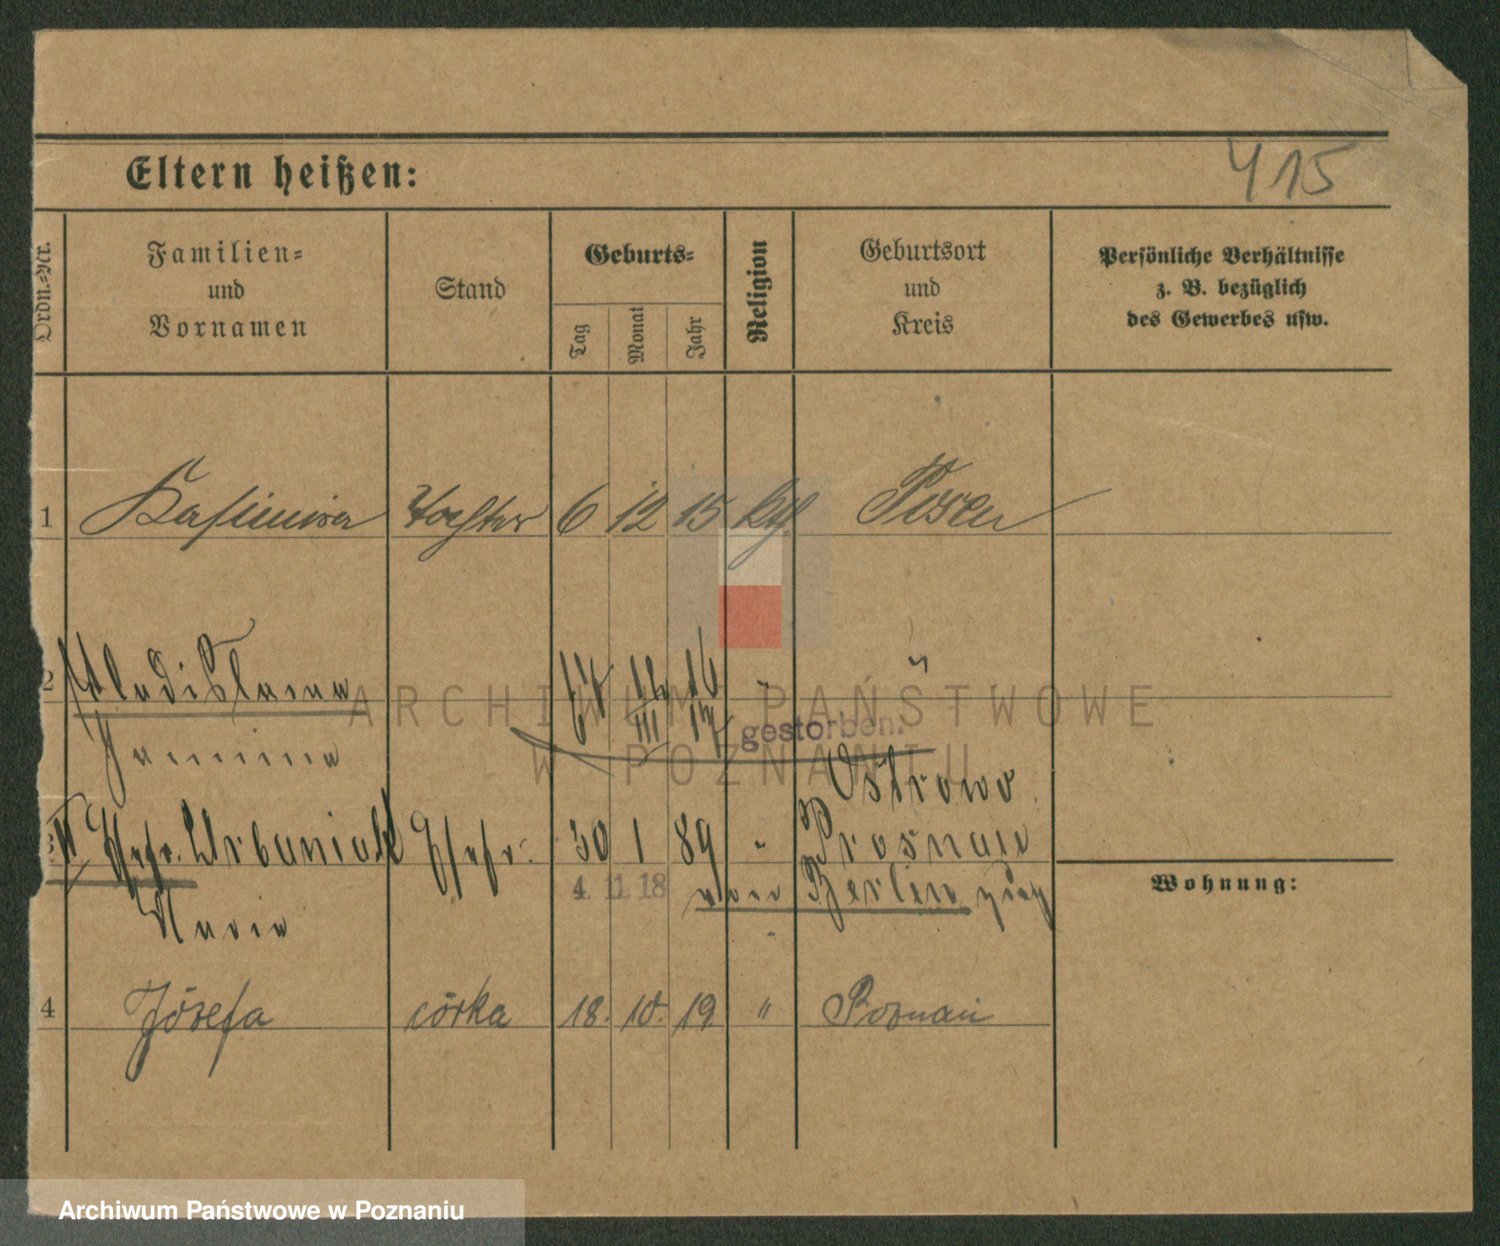 415
Eltern heißen:
Ordn.-Nr. Familien- und Vornamen Stand Geburts- Tag Monat Jahr Religion Geburtsort und Kreis Persönliche Verhältnisse z. B. bezüglich des Gewerbes usw.
1 Kasimira Tochter 6 12 15 kth. Posen
2 Wladislawa 12 16 "
Jannina III 17 gestorben.
Ostrowo
3 Urbaniak Ehefr. 30 1 89 " Prosnau
4. 11. 18 von Berlin zug
Wohnung:
Maria
4 Józefa córka 18. 10. 19 " Poznań
ARCHIWUM PAŃSTWOWE
W POZNANIU
Archiwum Państwowe w Poznaniu